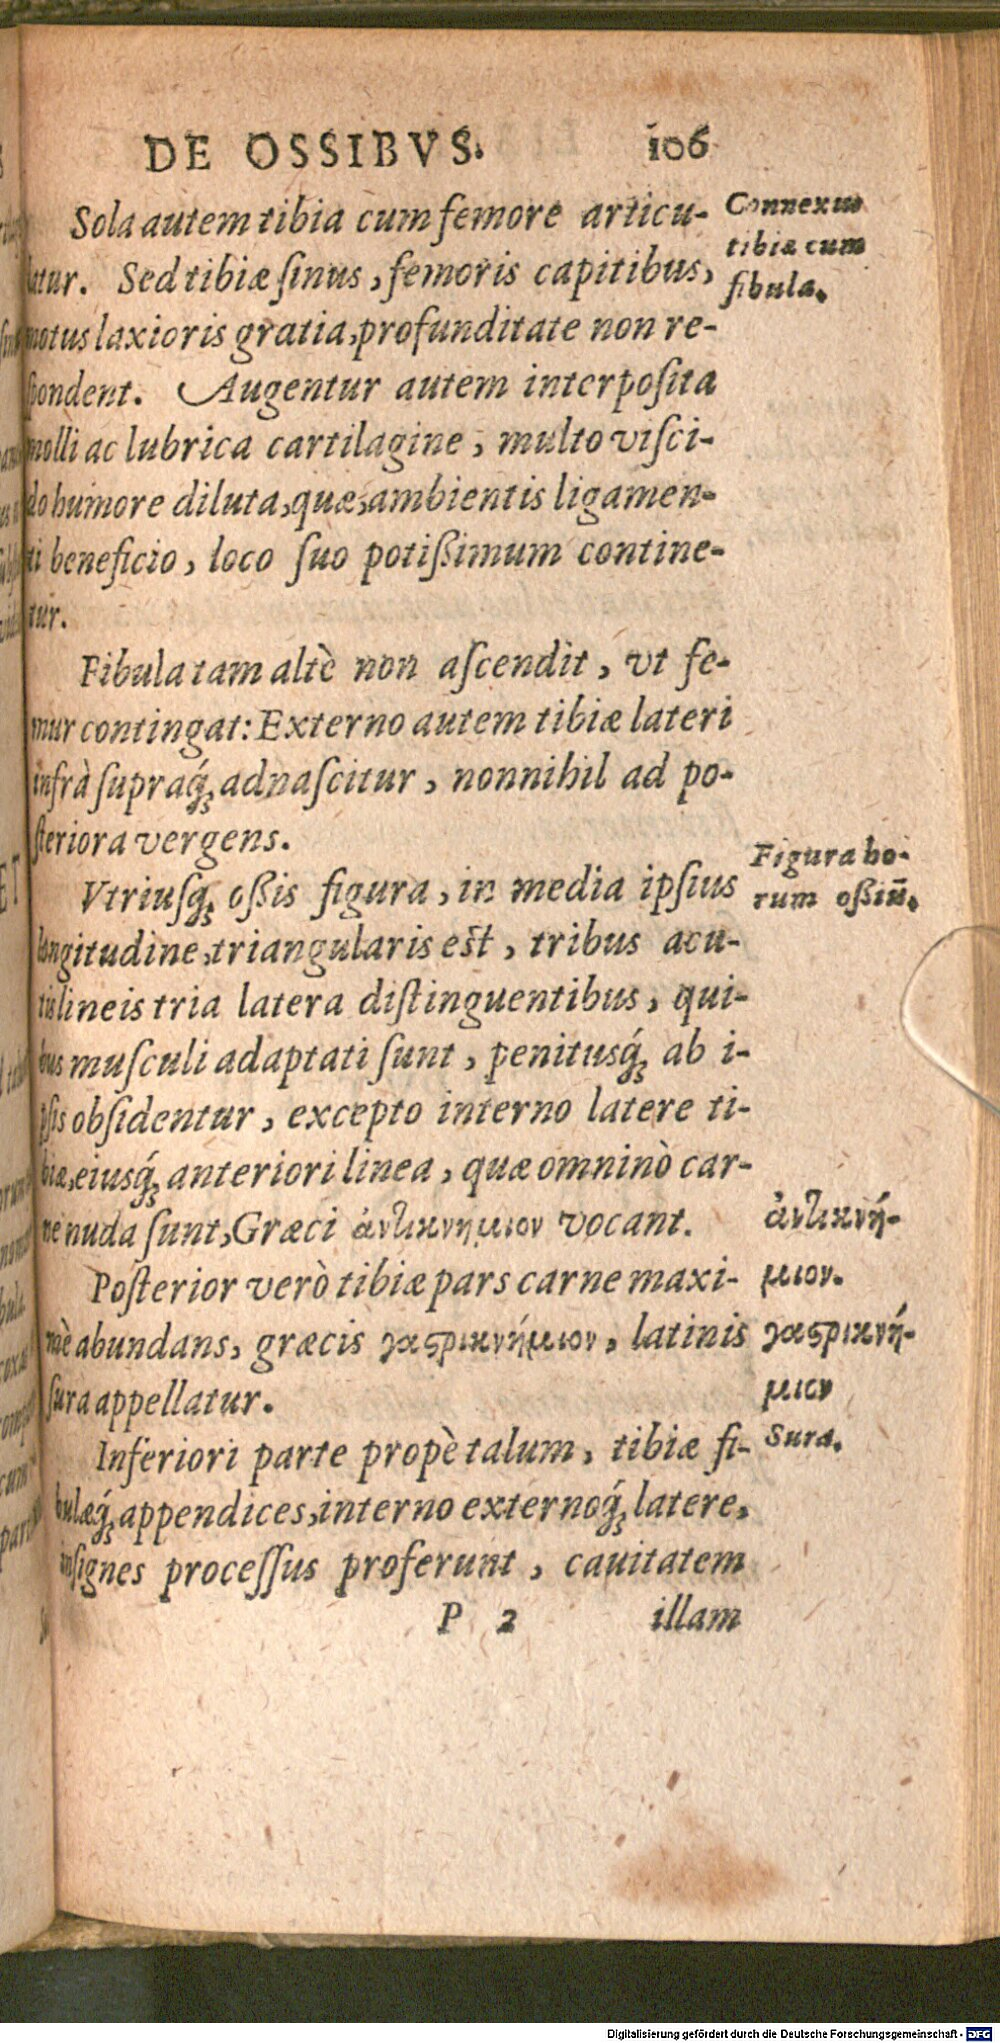 DE OSSIBVS. 106
Sola autem tibia cum femore articu-
latur. Sed tibiæ ſinus, femoris capitibus,
motus laxioris gratia, profunditate non re-
ſpondent. Augentur autem interpoſita
molli ac lubrica cartilagine, multo viſci-
do humore diluta, quæ, ambientis ligamen-
ti beneficio, loco ſuo potißimum contine-
tur.
Connexus
tibiæ cum
fibula.
Fibula tam altè non aſcendit, vt fe-
mur contingat: Externo autem tibiæ lateri
infrà ſupraq́; adnaſcitur, nonnihil ad po-
ſteriora vergens.
Vtriuſq; oßis figura, in media ipſius
longitudine, triangularis eſt, tribus acu-
tis lineis tria latera diſtinguentibus, qui-
bus muſculi adaptati ſunt, penitusq́; ab i-
pſis obſidentur, excepto interno latere ti-
biæ, eiusq́; anteriori linea, quæ omninò car-
ne nuda ſunt, Græci ἀντικνημιον vocant.
Figura ho-
rum oßiū.
ἀντικνή-
μιον.
Poſterior verò tibiæ pars carne maxi-
mè abundans, græcis γαϛρικνήμιον, latinis
ſura appellatur.
γαϛρικνή-
μιον
Sura.
Inferiori parte propè talum, tibiæ fi-
bulæq́; appendices, interno externoq́; latere,
inſignes proceſſus proferunt, cauitatem
P 2 illam
Digitalisierung gefördert durch die Deutsche Forschungsgemeinschaft - DFG